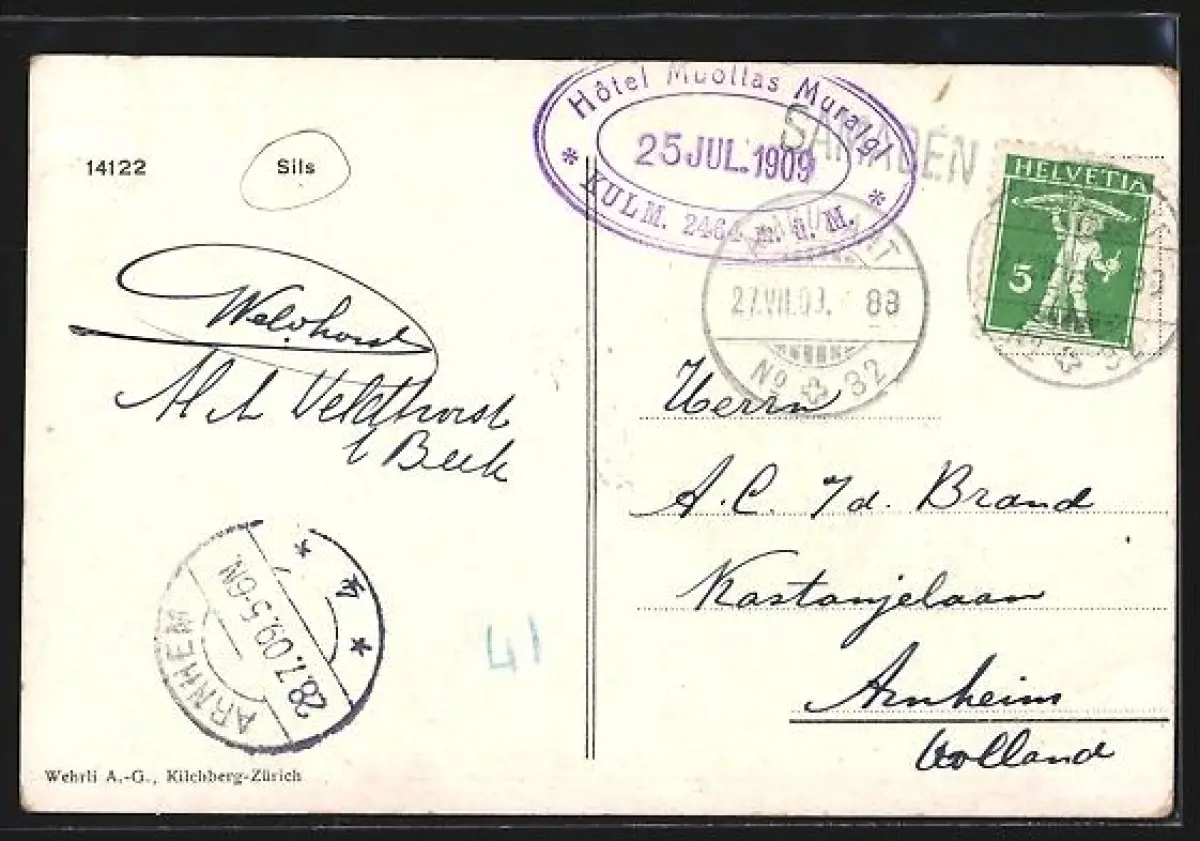 14122
Sils
Hôtel Muottas Muraigl
25 JUL. 1909
KULM. 2464 m. ü. M.
SAMADEN
HELVETIA
5
AMBULANT
27.VII.09. 88
No 32
Veldhorst
Veldhorst
Beek
Herrn
A. C. v/d. Brand
Kastanjelaan
Arnheim
Holland
ARNHEM
28.7.09.5-6N.
4
41
Wehrli A.-G., Kilchberg-Zürich